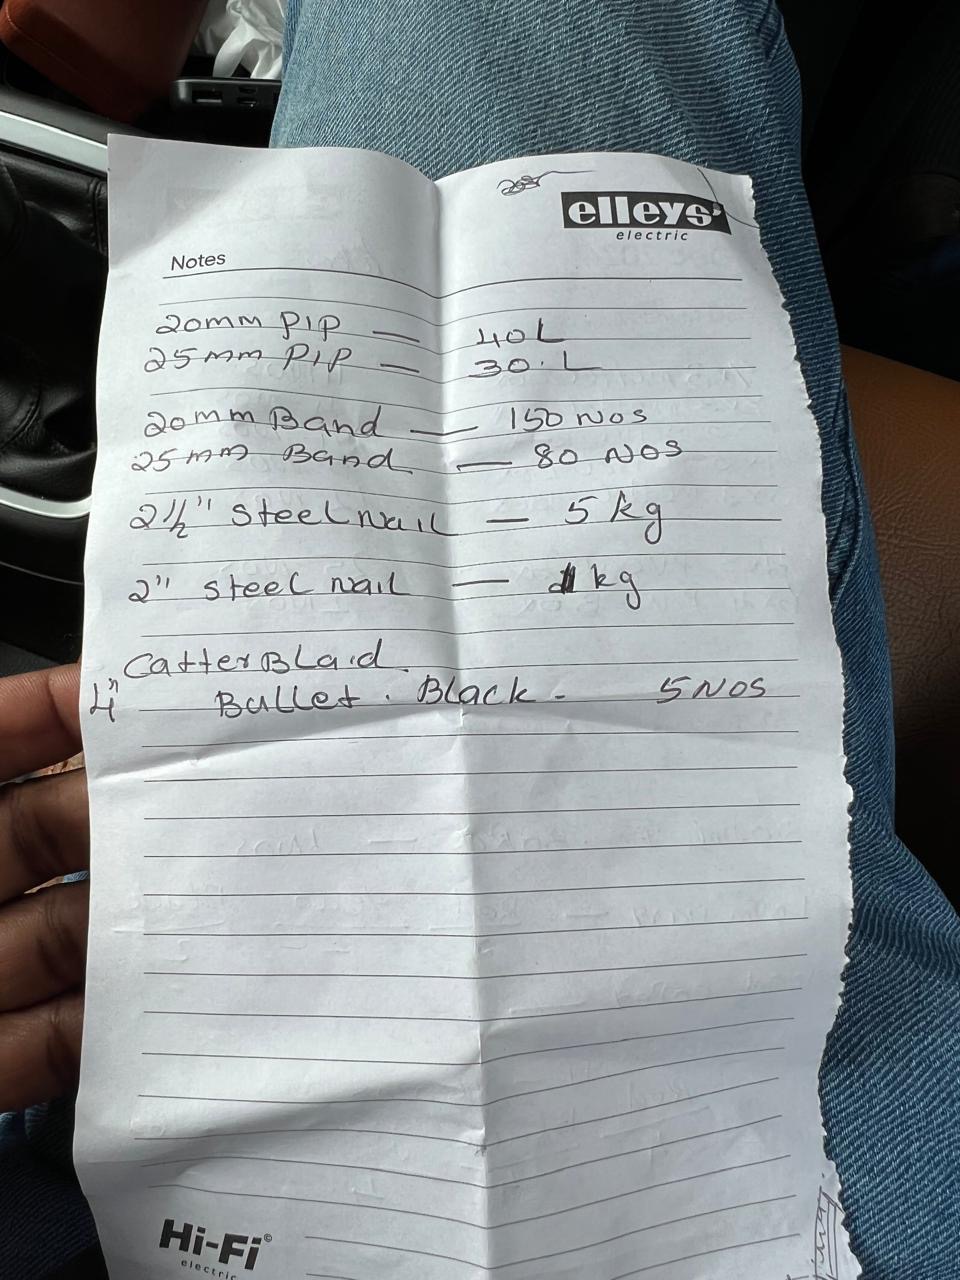 elleys'
electric
Notes
20mm PIP — 40L
25mm PIP — 30.L
20mm Band — 150 NOS
25mm Band — 80 NOS
2½" Steel Nail — 5 kg
2" Steel Nail — 1 kg
Catter BLaid
4" Bullet . Black - 5 NOS
Hi-Fi©
electric